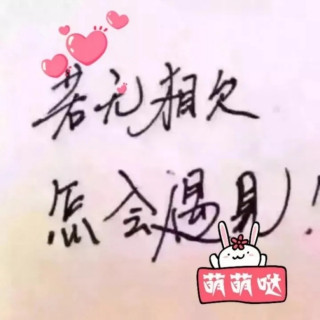 若无相欠
怎会遇见!
萌萌哒